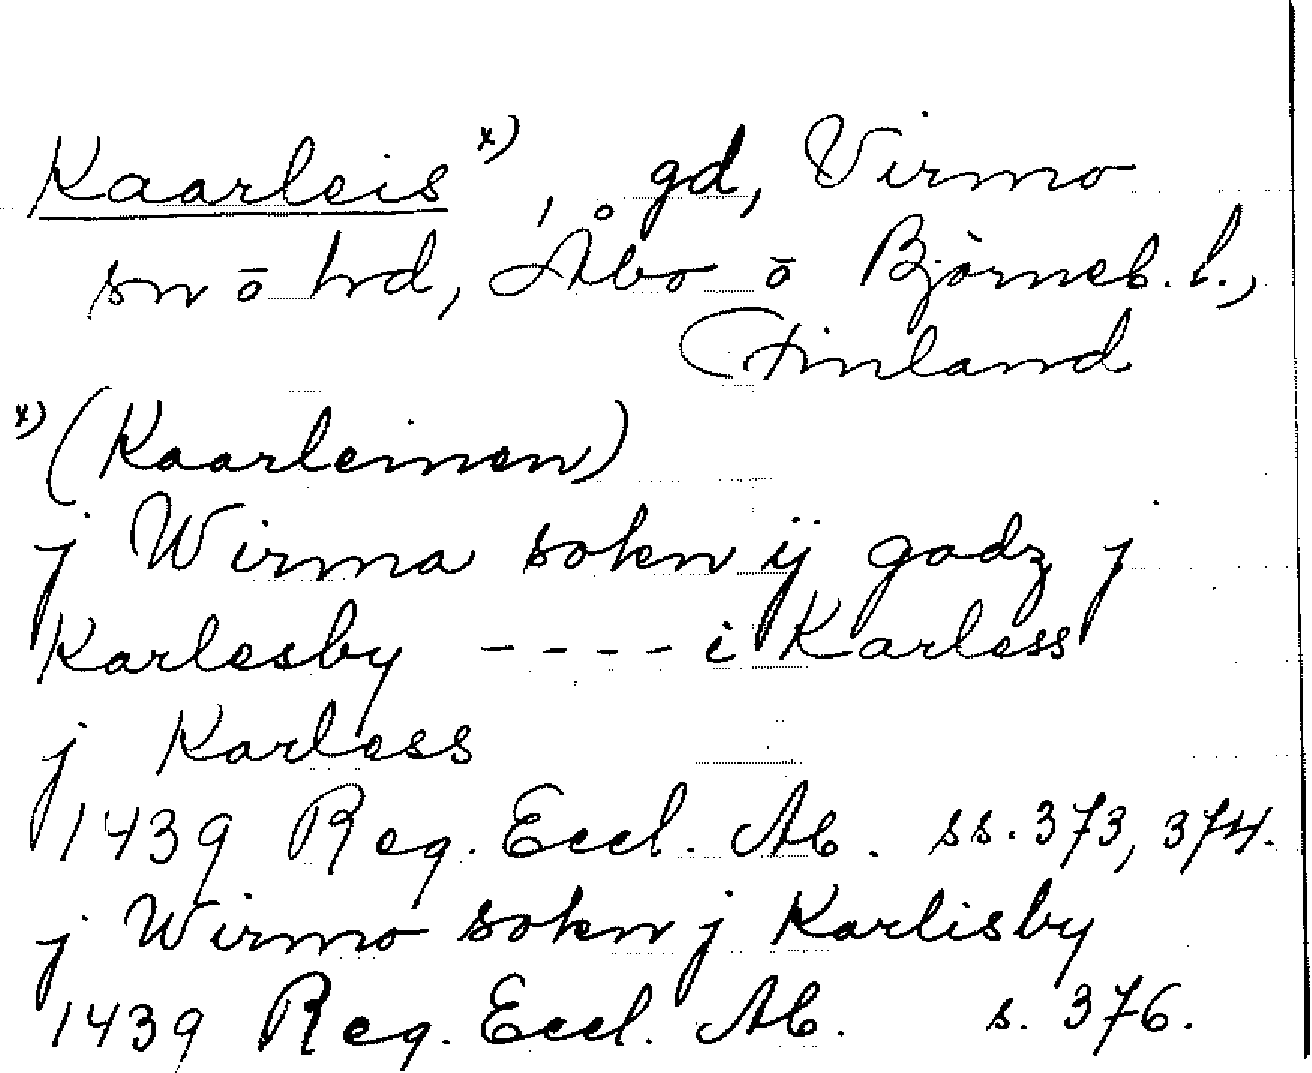 Kaarleis x), gd, Virmo
sn o hd, Åbo o Björneb. l.,
Finland
x) (Kaarleinen)
j Wirma sokn ij godz j
Karlesby - - - - i Karless
j Karless
1439 Reg. Eccl. Ab. ss. 373, 374.
j Wirmo sokn j Karlisby
1439 Reg. Eccl. Ab. s. 376.